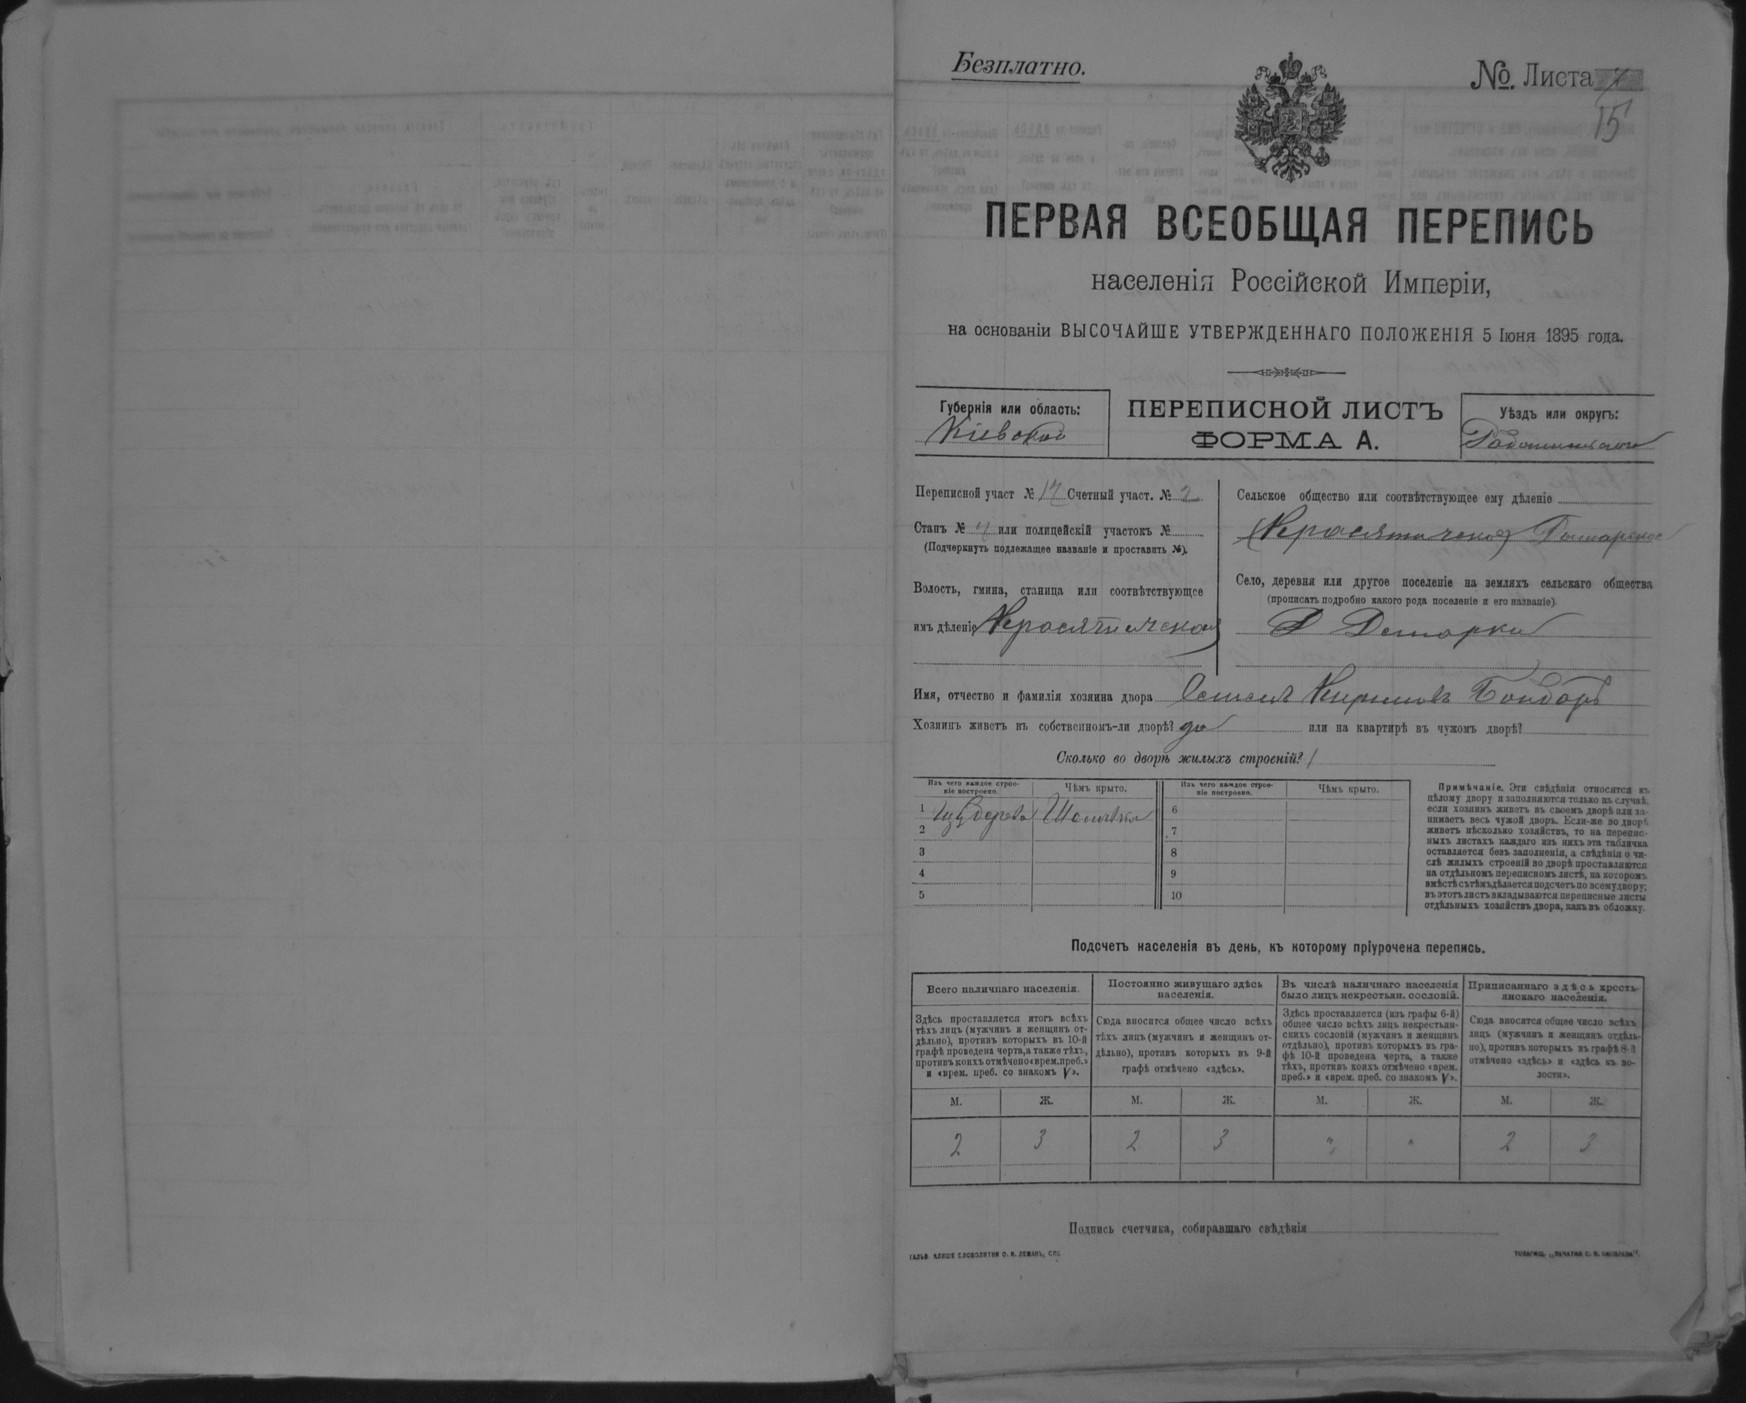 Безплатно.
№. Листа
15
ПЕРВАЯ ВСЕОБЩАЯ ПЕРЕПИСЬ
населенія Россійской Имперіи,
на основаніи ВЫСОЧАЙШЕ УТВЕРЖДЕННАГО ПОЛОЖЕНІЯ 5 Іюня 1895 года.
Губернія или область:
Кіевской
ПЕРЕПИСНОЙ ЛИСТЪ
ФОРМА А.
Уѣздъ или округъ:
Переписной участ № 17 Счетный участ. № 2
Станъ № 4 или полицейскій участокъ №
(Подчеркнуть подлежащее названіе и проставить №).
Волость, гмина, станица или соотвѣтствующее
имъ дѣленіе
Сельское общество или соотвѣтствующее ему дѣленіе
Село, деревня или другое поселеніе на земляхъ сельскаго общества
(прописать подробно какого рода поселеніе и его названіе).
Имя, отчество и фамилія хозяина двора Бондарь
Хозяинъ живетъ въ собственномъ-ли дворѣ? да или на квартирѣ въ чужомъ дворѣ?
Сколько во дворѣ жилыхъ строеній? 1
Изъ чего каждое строе-
ніе построено.
Чѣмъ крыто.
Изъ чего каждое строе-
ніе построено.
Чѣмъ крыто.
1 Изъ дерева
2
3
4
5
6
7
8
9
10
Примѣчаніе. Эти свѣдѣнія относятся къ
цѣлому двору и заполняются только въ случаѣ,
если хозяинъ живетъ въ своемъ дворѣ или за-
нимаетъ весь чужой дворъ. Если-же во дворѣ
живетъ нѣсколько хозяйствъ, то на перепис-
ныхъ листахъ каждаго изъ нихъ эта табличка
оставляется безъ заполненія, а свѣдѣнія о чи-
слѣ жилыхъ строеній во дворѣ проставляются
на отдѣльномъ переписномъ листѣ, на которомъ
вмѣстѣ съ тѣмъ дѣлается подсчетъ по всему двору;
въ этотъ листъ вкладываются переписные листы
отдѣльныхъ хозяйствъ двора, какъ въ обложку.
Подсчетъ населенія въ день, къ которому пріурочена перепись.
Всего наличнаго населенія.
Здѣсь проставляется итогъ всѣхъ
тѣхъ лицъ (мужчинъ и женщинъ от-
дѣльно), противъ которыхъ въ 10-й
графѣ проведена черта, а также тѣхъ,
противъ коихъ отмѣчено «врем. преб.»
и «врем. преб. со знакомъ V».
Постоянно живущаго здѣсь
населенія.
Сюда вносится общее число всѣхъ
тѣхъ лицъ (мужчинъ и женщинъ от-
дѣльно), противъ которыхъ въ 9-й
графѣ отмѣчено «здѣсь».
Въ числѣ наличнаго населенія
было лицъ некрестьян. сословій.
Здѣсь проставляется (изъ графы 6-й)
общее число всѣхъ лицъ некрестьян-
скихъ сословій (мужчинъ и женщинъ
отдѣльно), противъ которыхъ въ гра-
фѣ 10-й проведена черта, а также
тѣхъ, противъ коихъ отмѣчено «врем.
преб.» и «врем. преб. со знакомъ V».
Приписаннаго здѣсь кресть-
янскаго населенія.
Сюда вносится общее число всѣхъ
лицъ (мужчинъ и женщинъ отдѣль-
но), противъ которыхъ въ графѣ 8-й
отмѣчено «здѣсь» и «здѣсь въ во-
лости».
М. Ж. М. Ж. М. Ж. М. Ж.
2 3 2 3 " " 2 3
Подпись счетчика, собиравшаго свѣдѣнія